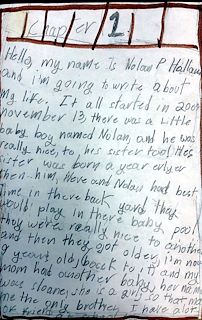 Chapter 1
Hello, my name Is Nolan P
and i'm going to write about
my life. It all started in
november 13, there was a Little
baby boy named Nolan, and he was
really nice, to, his sister too
sister was born a year
then him, and Nolan had best
time in there back yard they
would play in there baby pool
they were really nice to
and then they got older, i'm now
9 years old, back to it, and my
mom had another baby her
was sloane, she is a girl so that
me the only brother, I have